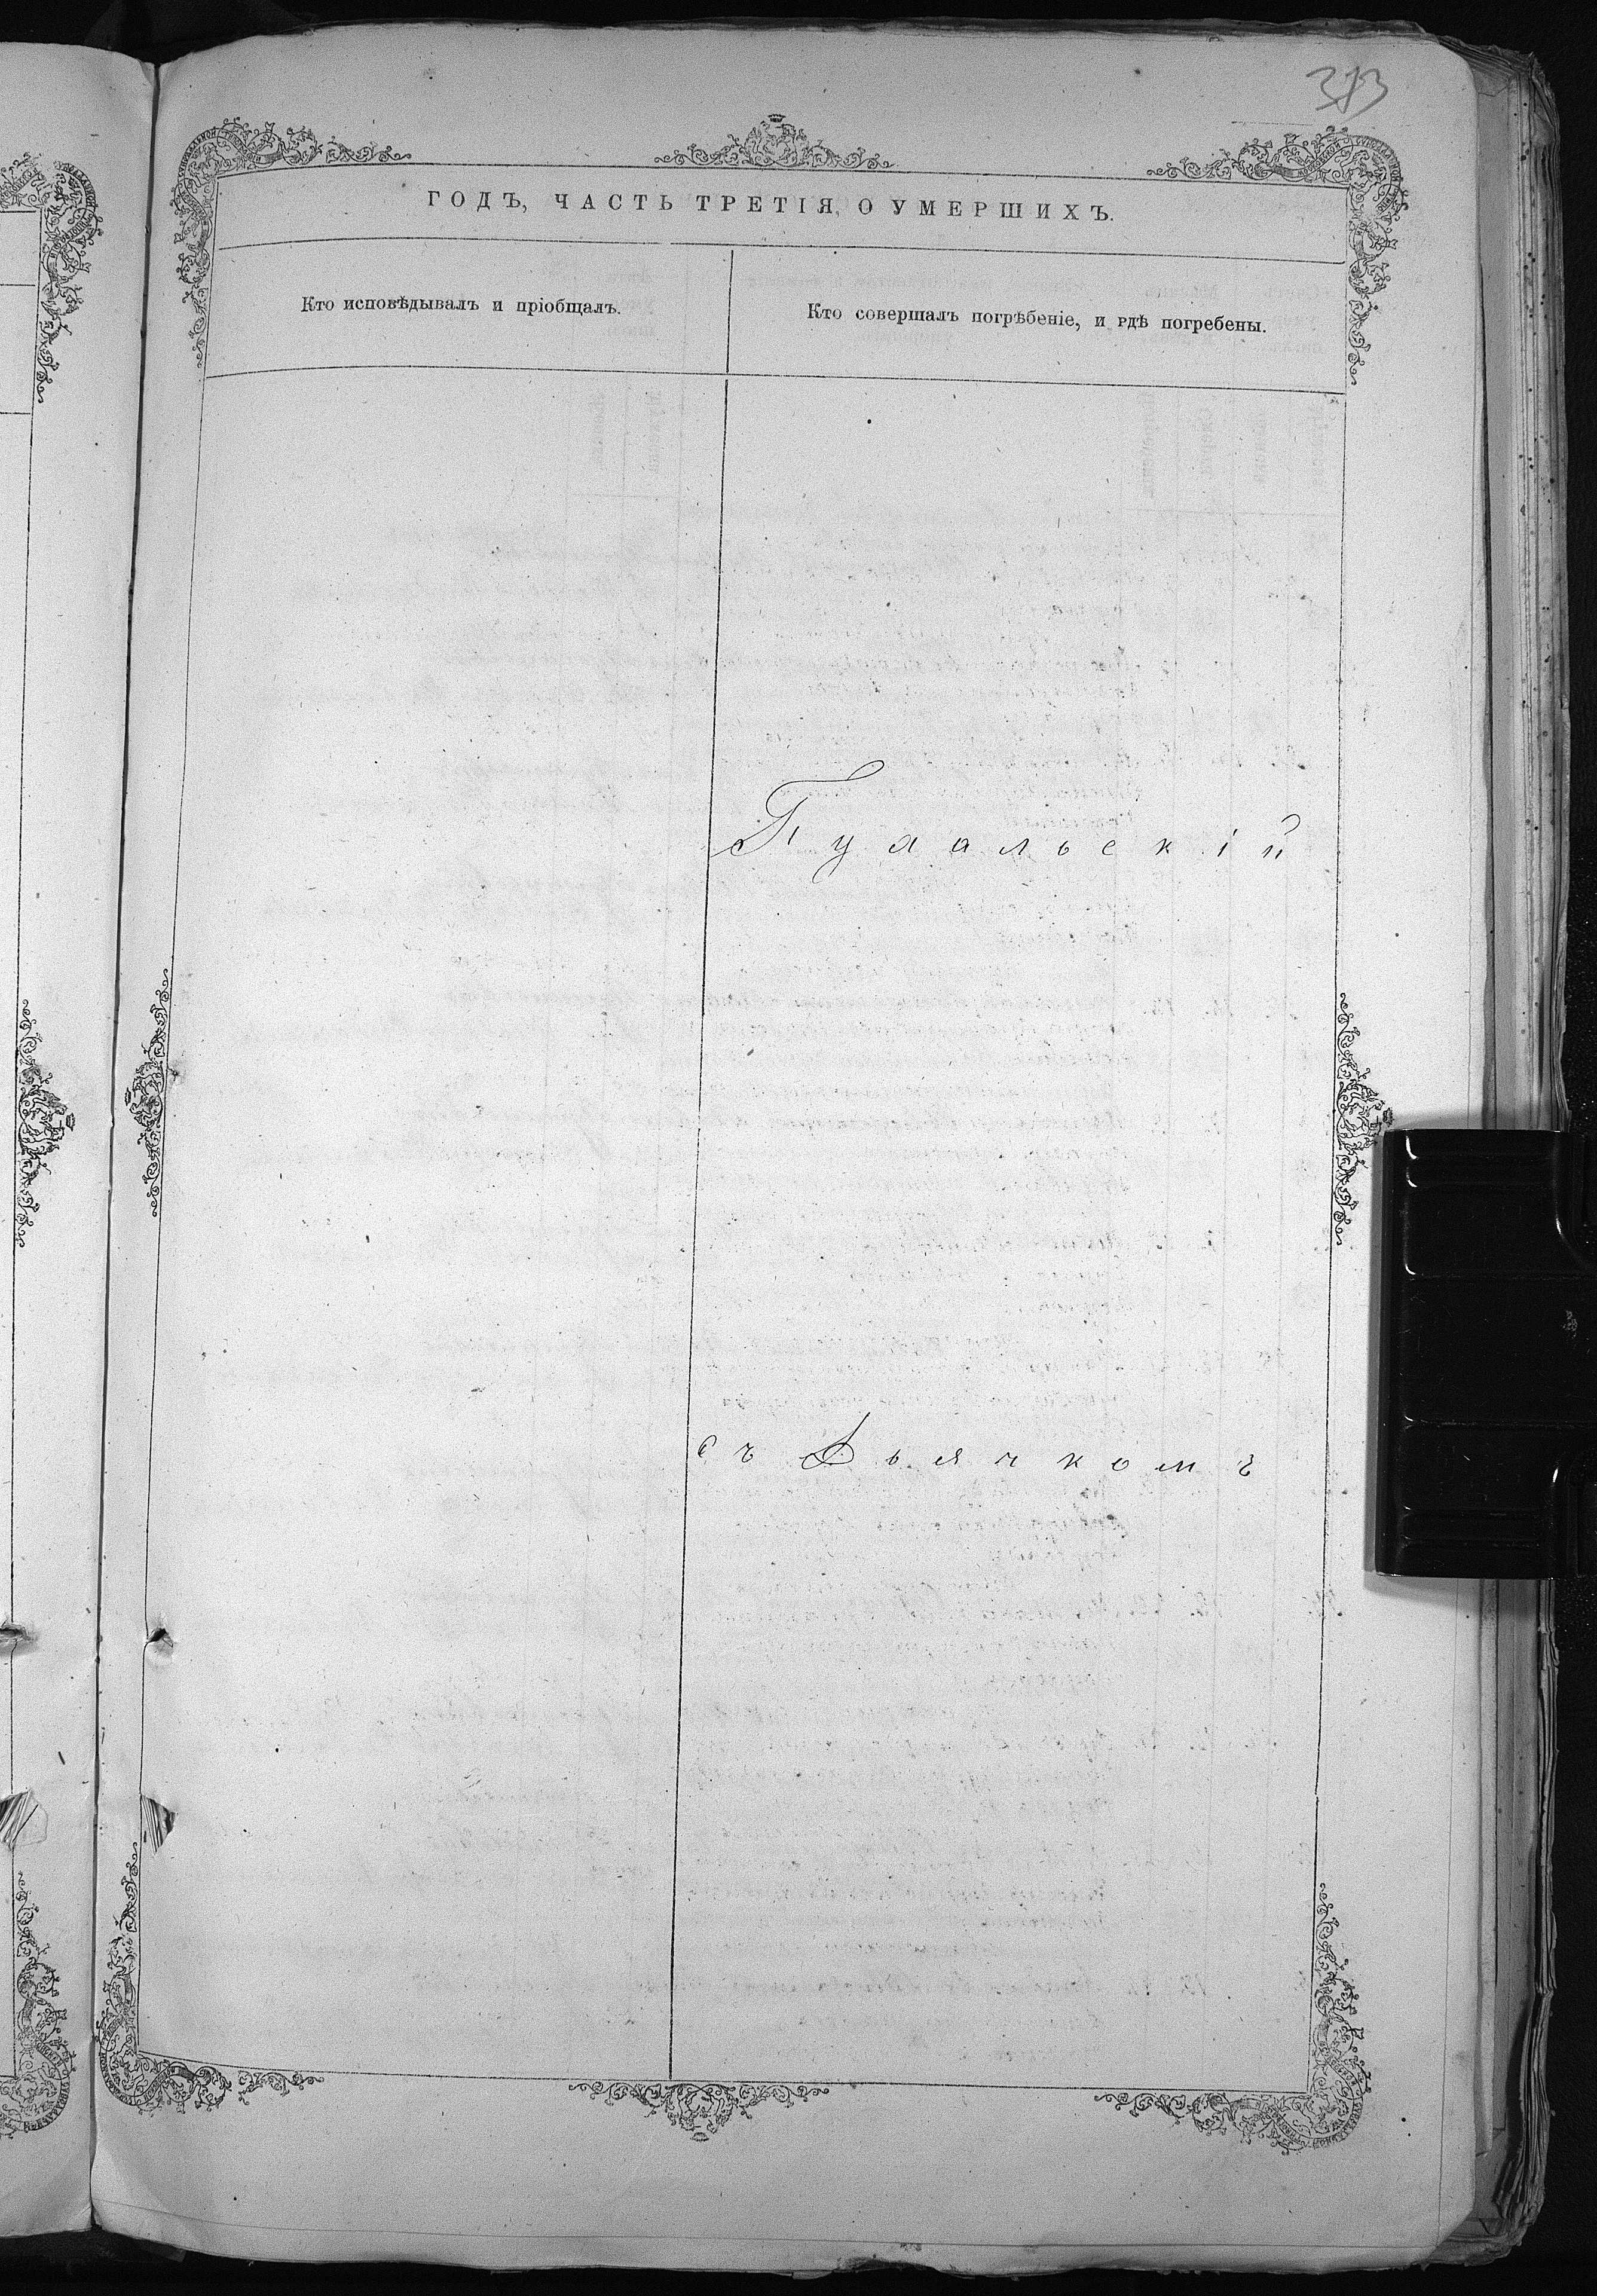 313
ГОДЪ, ЧАСТЬ ТРЕТІЯ, О УМЕРШИХЪ.
Кто исповѣдывалъ и пріобщалъ.
Кто совершалъ погрѣбеніе, и гдѣ погребены.
съ Дьячкомъ